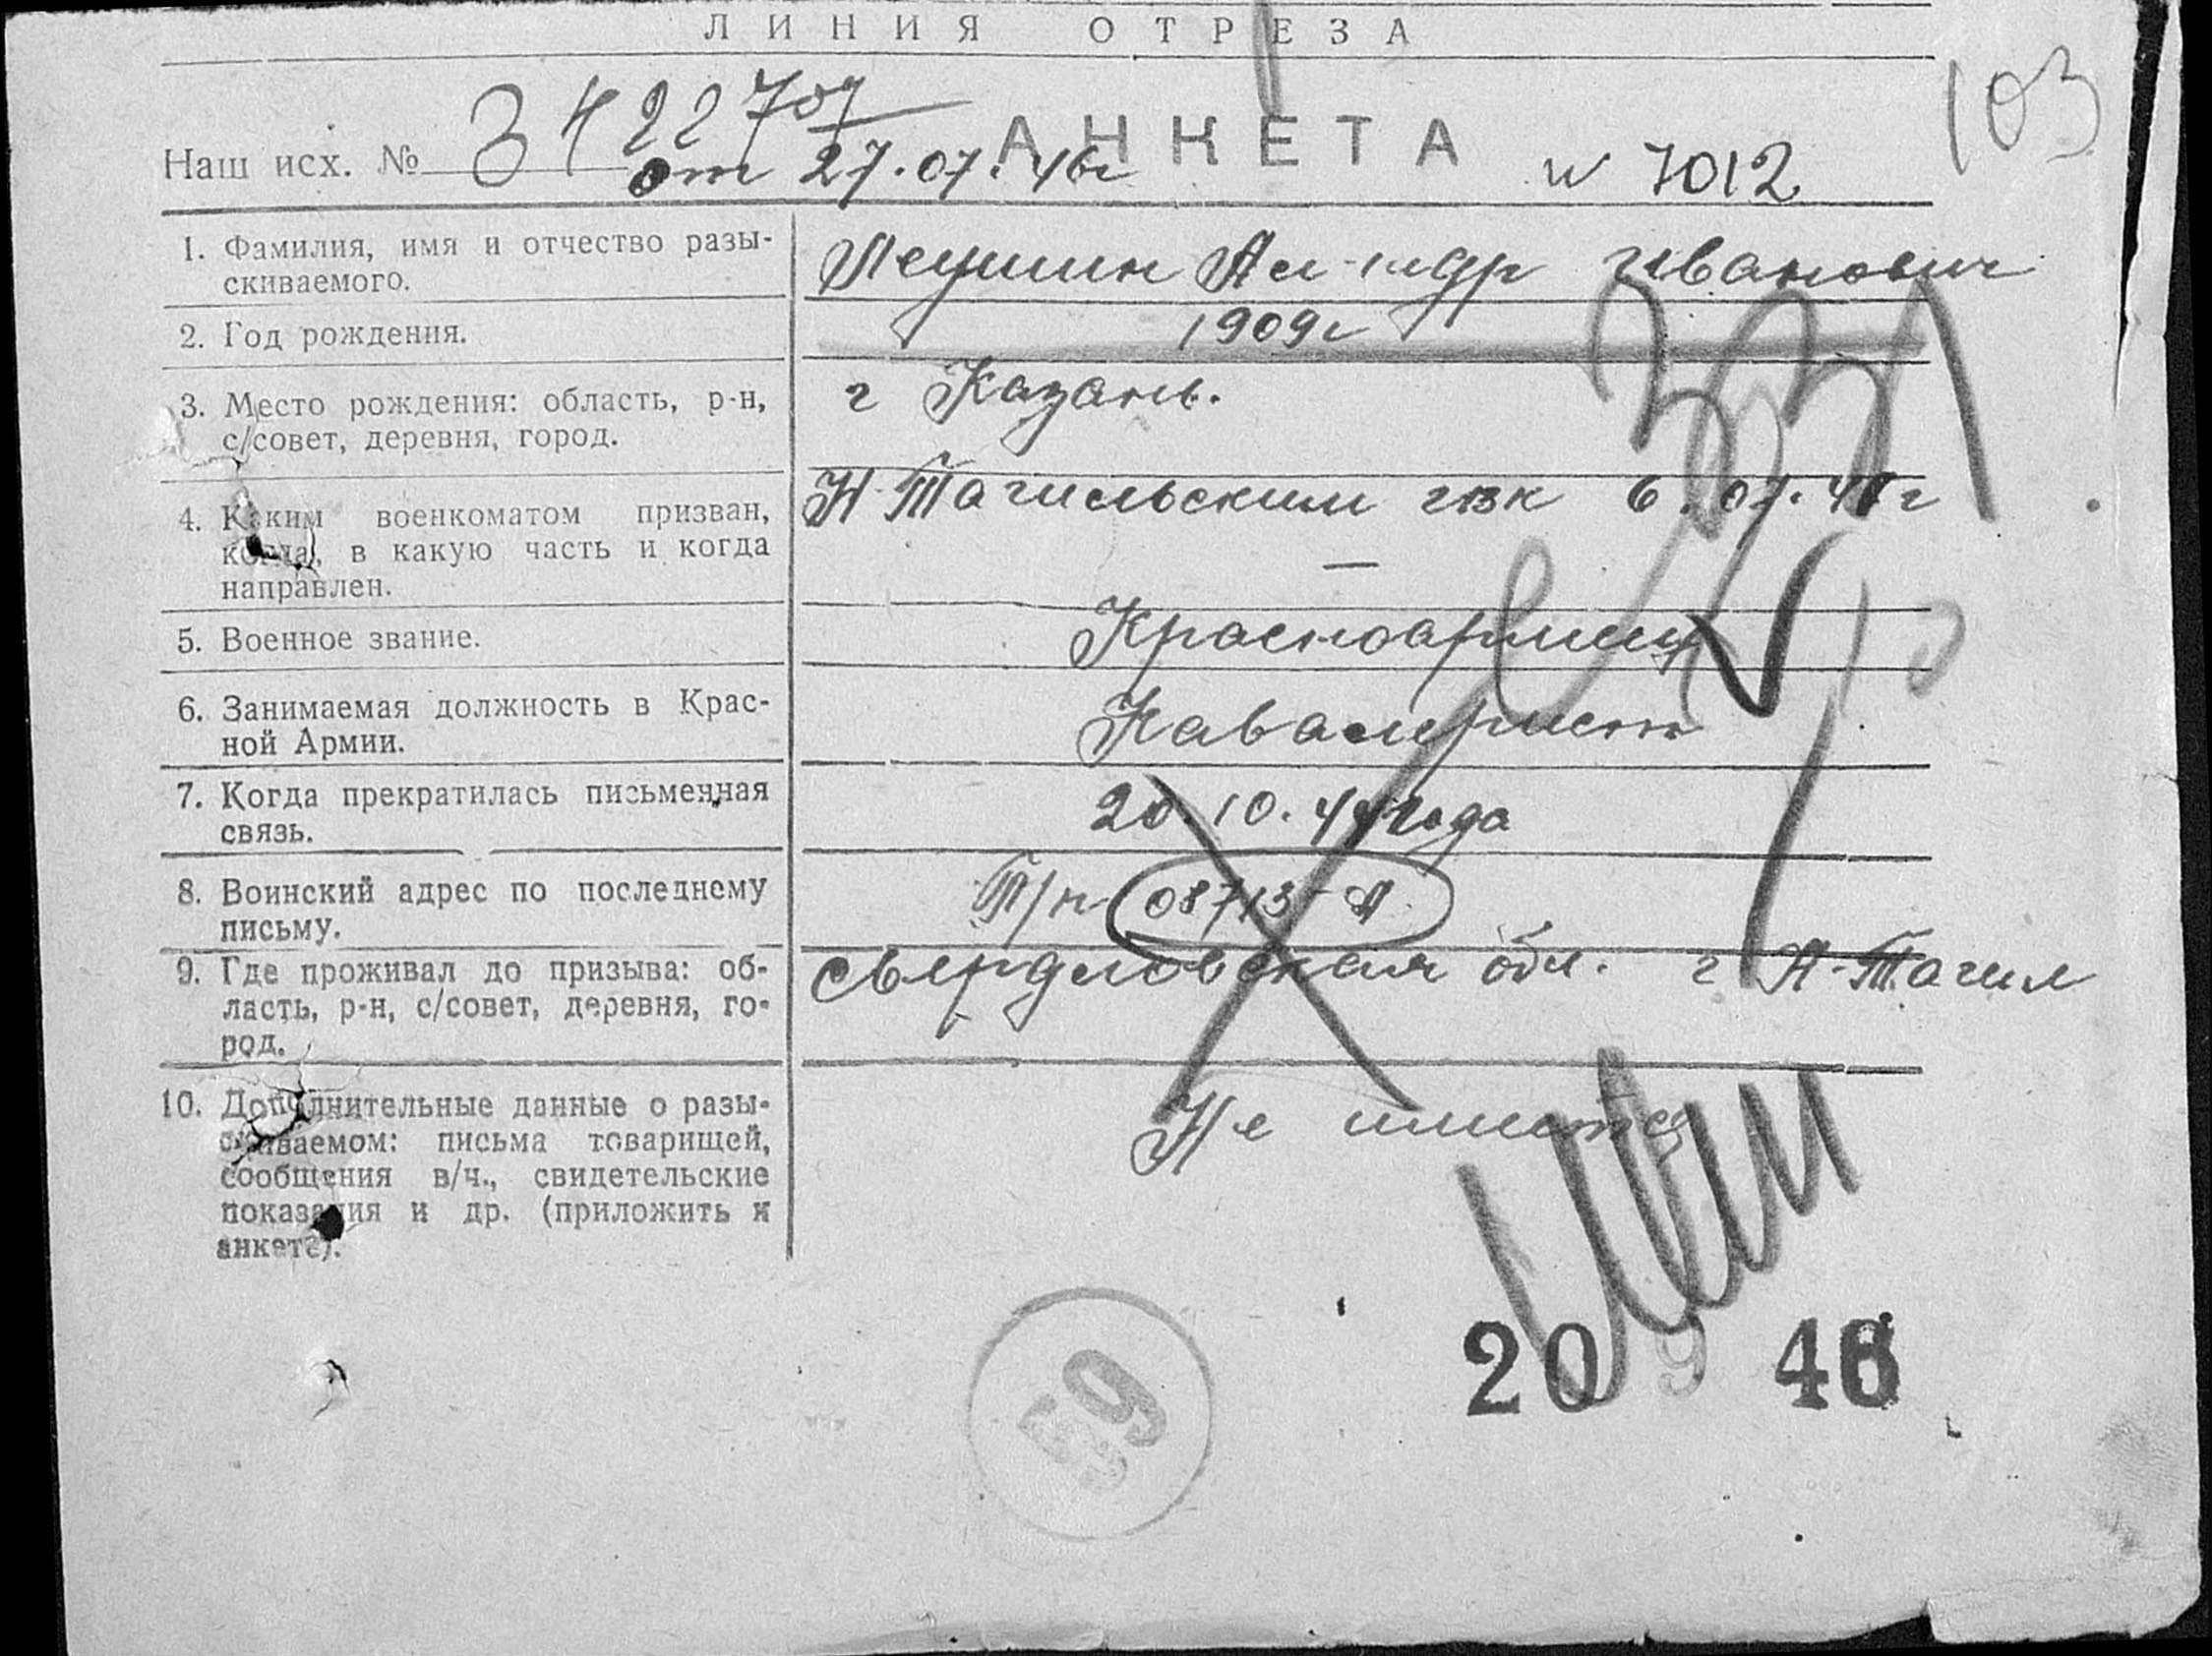 ЛИНИЯ ОТРЕЗА
103
Наш исх. № 34227 АНКЕТА
от 27.07.46г № 7012
1. Фамилия, имя и отчество разы-
скиваемого.
Ал-ндр Иванович
2. Год рождения.
1909г
3. Место рождения: область, р-н,
с/совет, деревня, город.
г Казань.
4. Каким военкоматом призван,
когда, в какую часть и когда
направлен.
Н-Тагильским гвк 6.07.41г
—
5. Военное звание.
Красноармеец
6. Занимаемая должность в Крас-
ной Армии.
Кавалерист
7. Когда прекратилась письменная
связь.
20.10.44 года
8. Воинский адрес по последнему
письму.
П/п 08713-А
9. Где проживал до призыва: об-
ласть, р-н, с/совет, деревня, го-
род.
Свердловская обл. г Н-Тагил
10. Дополнительные данные о разы-
скиваемом: письма товарищей,
сообщения в/ч., свидетельские
показания и др. (приложить к
анкете).
Не имеется
59
20 9 46